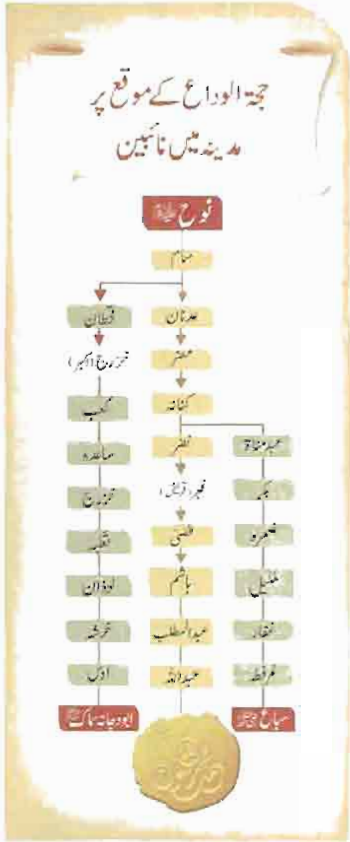 حجۃ الوداع کے موقع پر
مدینہ میں نائبین
نوح
سام
عدنان
مضر
کنانہ
نضر
فہر (قریش)
قصی
ہاشم
عبدالمطلب
عبداللہ
قحطان
خزرج (اکبر)
کعب
ساعدہ
خزرج
ثعلبہ
لوذان
خرشہ
اوس
ابودجانہ سماک
عبدمناۃ
بکر
ضمرہ
ملیل
غفار
عرفطہ
سباع